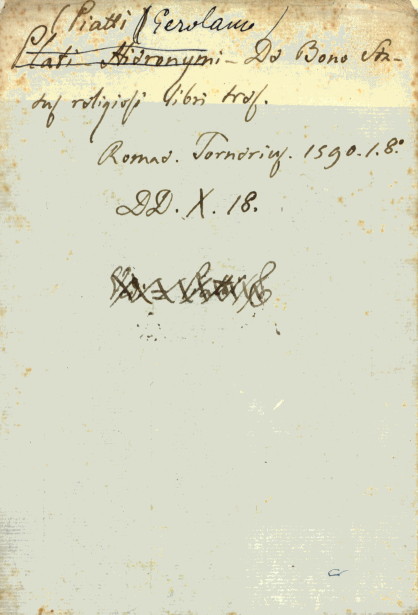 (Piatti (Gerolamo)
Plati Hieronymi - De Bono Sta-
tus religiosi libri tres.
Romae. Tornerius. 1590. 1. 8.°
DD. X. 18.